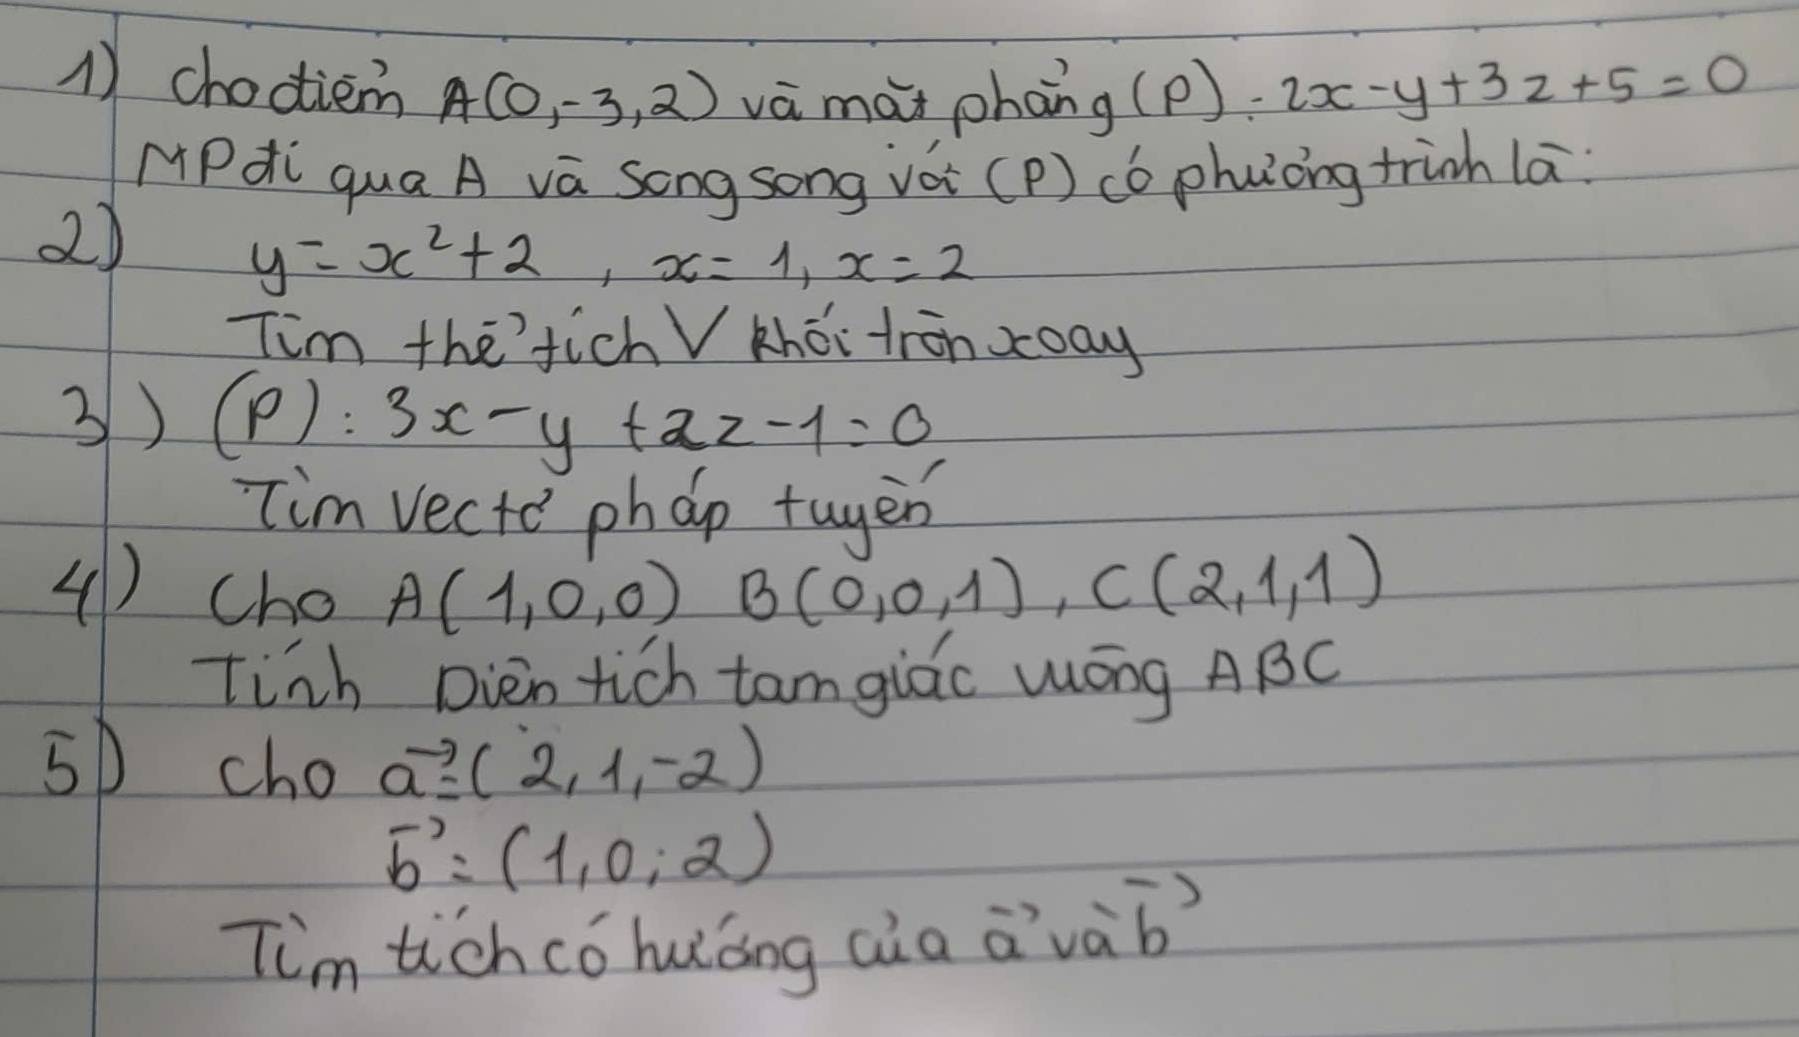 1) Cho điểm A(0,-3,2) và mặt phẳng (P): 2x-y+3z+5=0
MP đi qua A và song song với (P) có phương trình là:
2) y = x²+2, x=1, x=2
Tìm thể tích V khối tròn xoay
3) (P): 3x-y+2z-1=0
Tìm vectơ pháp tuyến
4) Cho A(1,0,0) B(0,0,1), C(2,1,1)
Tính Diện tích tam giác vuông ABC
5) Cho a⃗=(2,1,-2)
b⃗=(1,0;2)
Tìm tích có hướng của a⃗ và b⃗